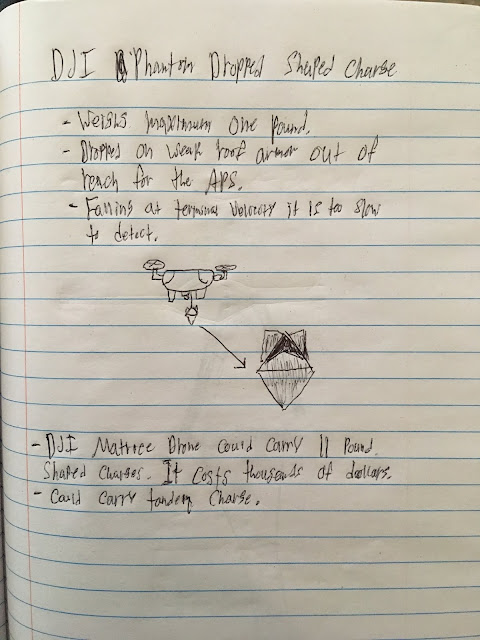 DJI Phantom Dropped Shaped Charge
- Weighs maximum one pound.
- Dropped on weak roof armor out of
reach for the APS.
- Falling at terminal velocity it is too slow
to detect.
- DJI Matrice Drone could carry 11 pound
shaped charges. It costs thousands of dollars.
- Could carry tandem charge.